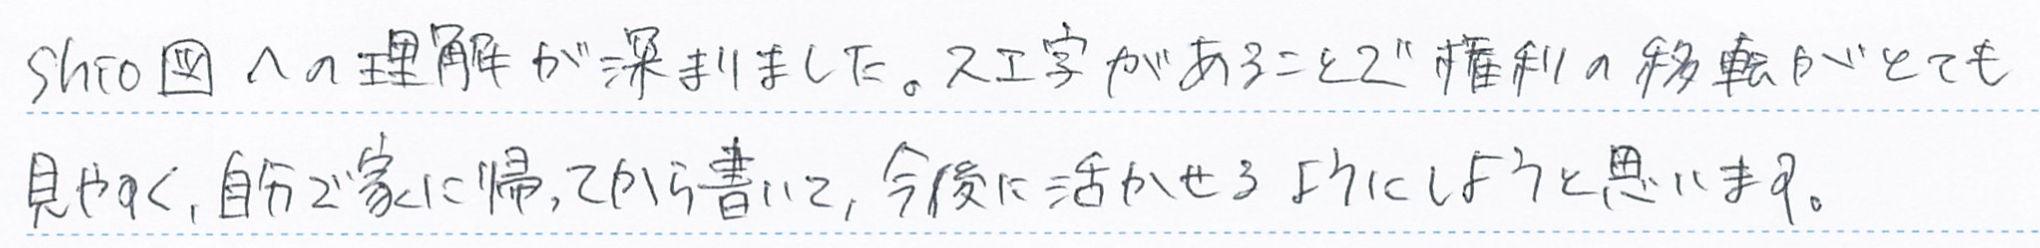 Shio図への理解が深まりました。ス工字があることで権利の移転がとても
見やすく,自分で家に帰ってから書いて,今後に活かせるようにしようと思います。